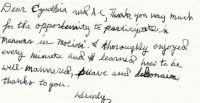 Dear Cynthia and A.C, Thank you very much
for the opportunity to participate in
Manners in Motion. I thoroughly enjoyed
every minute and learned how to be
well-mannered, suave and debonaire,
thanks to you.